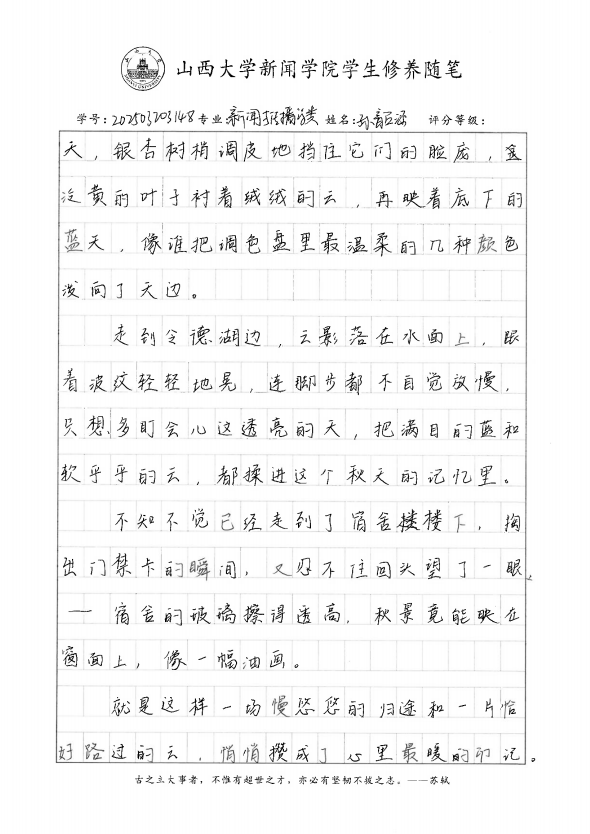 山西大学新闻学院学生修养随笔
学号:202503203148 专业 新闻传播学类 姓名: 评分等级:
天，银杏树梢调皮地挡住它们的脸庞，金
泛黄的叶子衬着绒绒的云，再映着底下的
蓝天，像谁把调色盘里最温柔的几种颜色
泼向了天边。
走到令德湖边，云影落在水面上，跟
着波纹轻轻地晃，连脚步都不自觉放慢，
只想多盯会儿这透亮的天，把满目的蓝和
软乎乎的云，都揉进这个秋天的记忆里。
不知不觉已经走到了宿舍楼楼下，掏
出门禁卡的瞬间，又忍不住回头望了一眼
——宿舍的玻璃擦得透高，秋景竟能映在
窗面上，像一幅油画。
就是这样一场慢悠悠的归途和一片恰
好路过的云，悄悄攒成了心里最暖的印记。
古之立大事者，不惟有超世之才，亦必有坚韧不拔之志。——苏轼